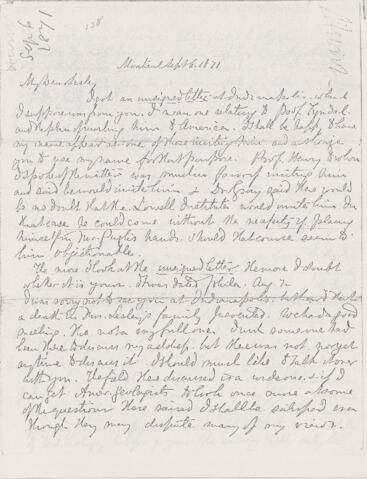 138
Sept 6
1871
Montreal Sept 6. 1871
My Dear Lesley
I got an unsigned letter at Indianapolis which
I suppose was from you. I mean one relating to Prof. Tyndal.
and the plan of inviting him to America. I shall be happy to have
my name appear as one of those inviting him and authorize
you to use my name for that purpose. Prof. Henry to whom
I spoke of the matter was much in favor of inviting him
and said he would invite him & Dr Gray said there could
be no doubt that the Lowell Institute would invite him. In
that case he could come without the necessity of placing
himself in Mr. Pugh's hands. Should that course seem to
him objectionable.
The more I look at the unsigned letter the more I doubt
whether it is yours. It was dated Phila. Aug
I was sorry not to see you at Indianapolis but heard that
a death in Mrs. Lesley's family prevented. We had a good
meeting, tho. not a very full one. I wish someone had
been there to discuss my address. but there was not, nor yet
any time to discuss it. I should much like to talk it over
with you. The field I have discussed is a wide one, & if I
can get Amer. geologists to look once more at some
of the questions I have raised I shall be satisfied even
though they may dispute many of my views.